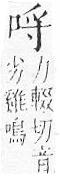 哷
力輟切音
劣雞鳴